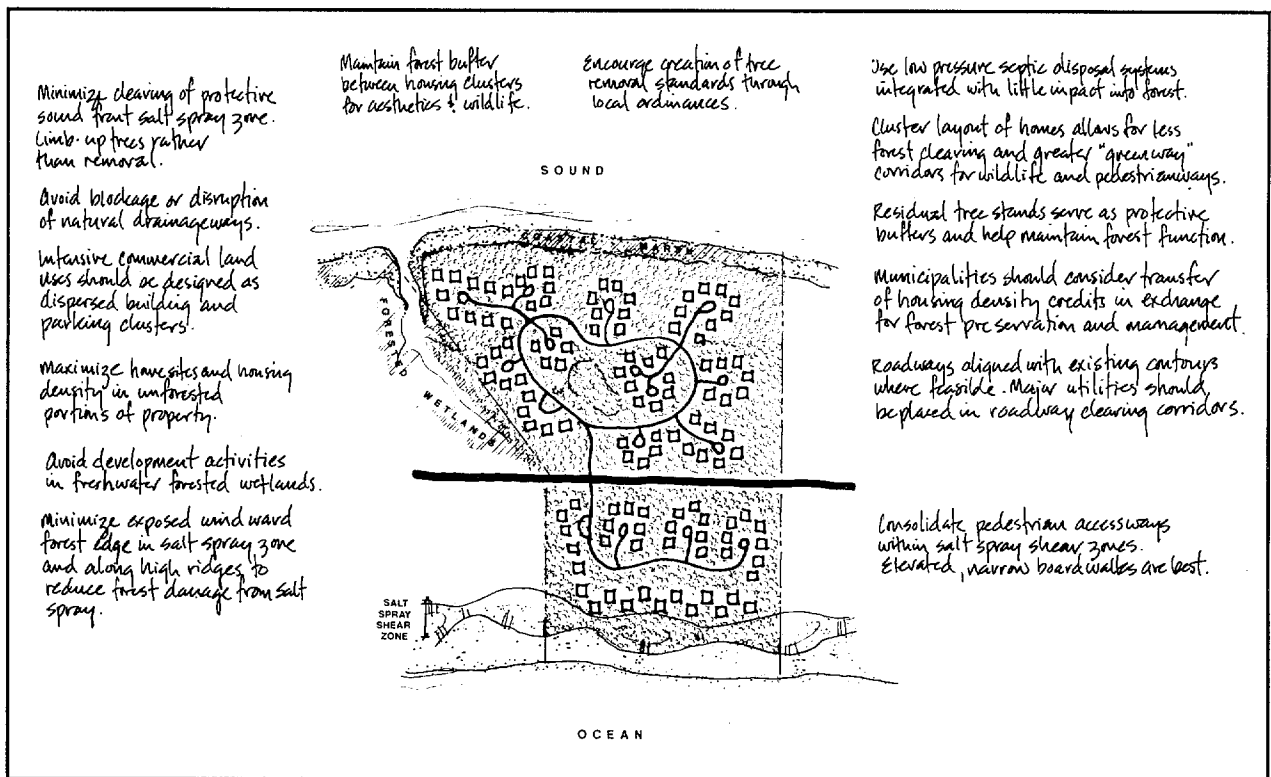 Minimize clearing of protective
sound front salt spray zone.
Limb-up trees rather
than removal.
Avoid blockage or disruption
of natural drainageways.
Intensive commercial land
uses should be designed as
dispersed building and
parking clusters.
Maximize homesites and housing
density in unforested
portions of property.
Avoid development activities
in freshwater forested wetlands.
Minimize exposed windward
forest edge in salt spray zone
and along high ridges to
reduce forest damage from salt
spray.
Maintain forest buffer
between housing clusters
for aesthetics & wildlife.
Encourage creation of tree
removal standards through
local ordinances.
SOUND
COASTAL MARSH
FORESTED
WETLANDS
SALT
SPRAY
SHEAR
ZONE
OCEAN
Use low pressure septic disposal systems
integrated with little impact into forest.
Cluster layout of homes allows for less
forest clearing and greater "greenway"
corridors for wildlife and pedestrianways.
Residual tree stands serve as protective
buffers and help maintain forest function.
Municipalities should consider transfer
of housing density credits in exchange
for forest preservation and management.
Roadways aligned with existing contours
where feasible. Major utilities should
be placed in roadway clearing corridors.
Consolidate pedestrian accessways
within salt spray shear zones.
Elevated, narrow boardwalks are best.